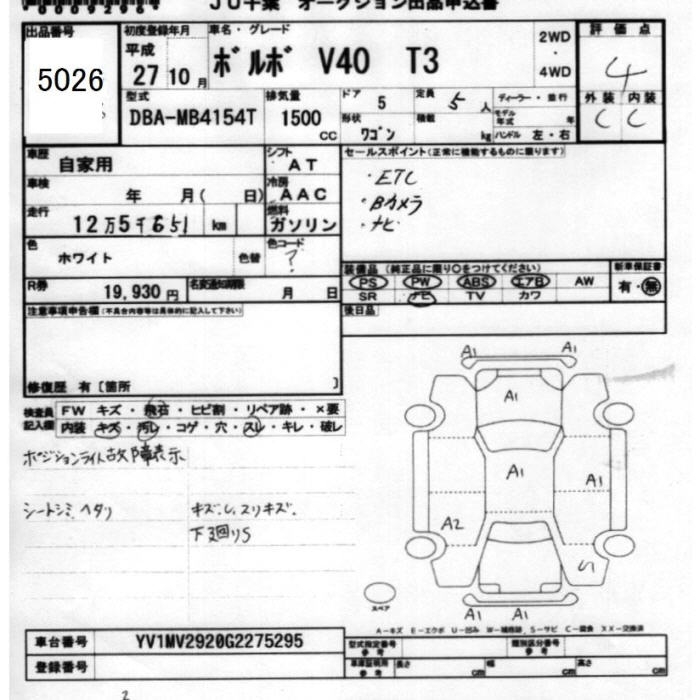 JU千葉 オークション出品申込書
出品番号
5026
初度登録年月
平成
27 10月
車名・グレード
ボルボ V40 T3
2WD
・
4WD
評価点
4
外装 内装
C C
型式
DBA-MB4154T
排気量
1500
CC
ドア
5
定員
5人
形状
ワゴン
積載
kg
ディーラー・並行
モデル年式 年
ハンドル 左・右
車歴
自家用
シフト
AT
車検
年 月( 日)
冷房
AAC
走行
12万5千651 km
燃料
ガソリン
色
ホワイト
色替
色コード
?
R券
19,930円
名変通知期限
月 日
セールスポイント(正常に機能するものに限ります)
・ETC
・Bカメラ
・ナビ
装備品(純正品に限り○をつけてください)
PS PW ABS エアB AW
SR ナビ TV カワ
新車保証書
有・無
後日品
注意事項申告欄(不具合内容等は具体的に記入して下さい)
修復歴 有〔箇所 〕
検査員記入欄
FW キズ・飛石・ヒビ割・リペア跡・×要
内装 キズ・汚レ・コゲ・穴・スレ・キレ・破レ
ポジションライト故障表示
シートシミ、ヘタリ
キズ、U、スリキズ、
下廻りS
A1 A1
A1
A1
A1
A2
A1 A1
スペア
A−キズ E−エクボ U−凹み W−補修跡 S−サビ C−腐食 XX−交換済
車台番号 YV1MV2920G2275295
登録番号
型式指定番号
参考
類別区分番号
参考
車庫証明用
参考
長さ cm 幅 cm 高さ cm
2